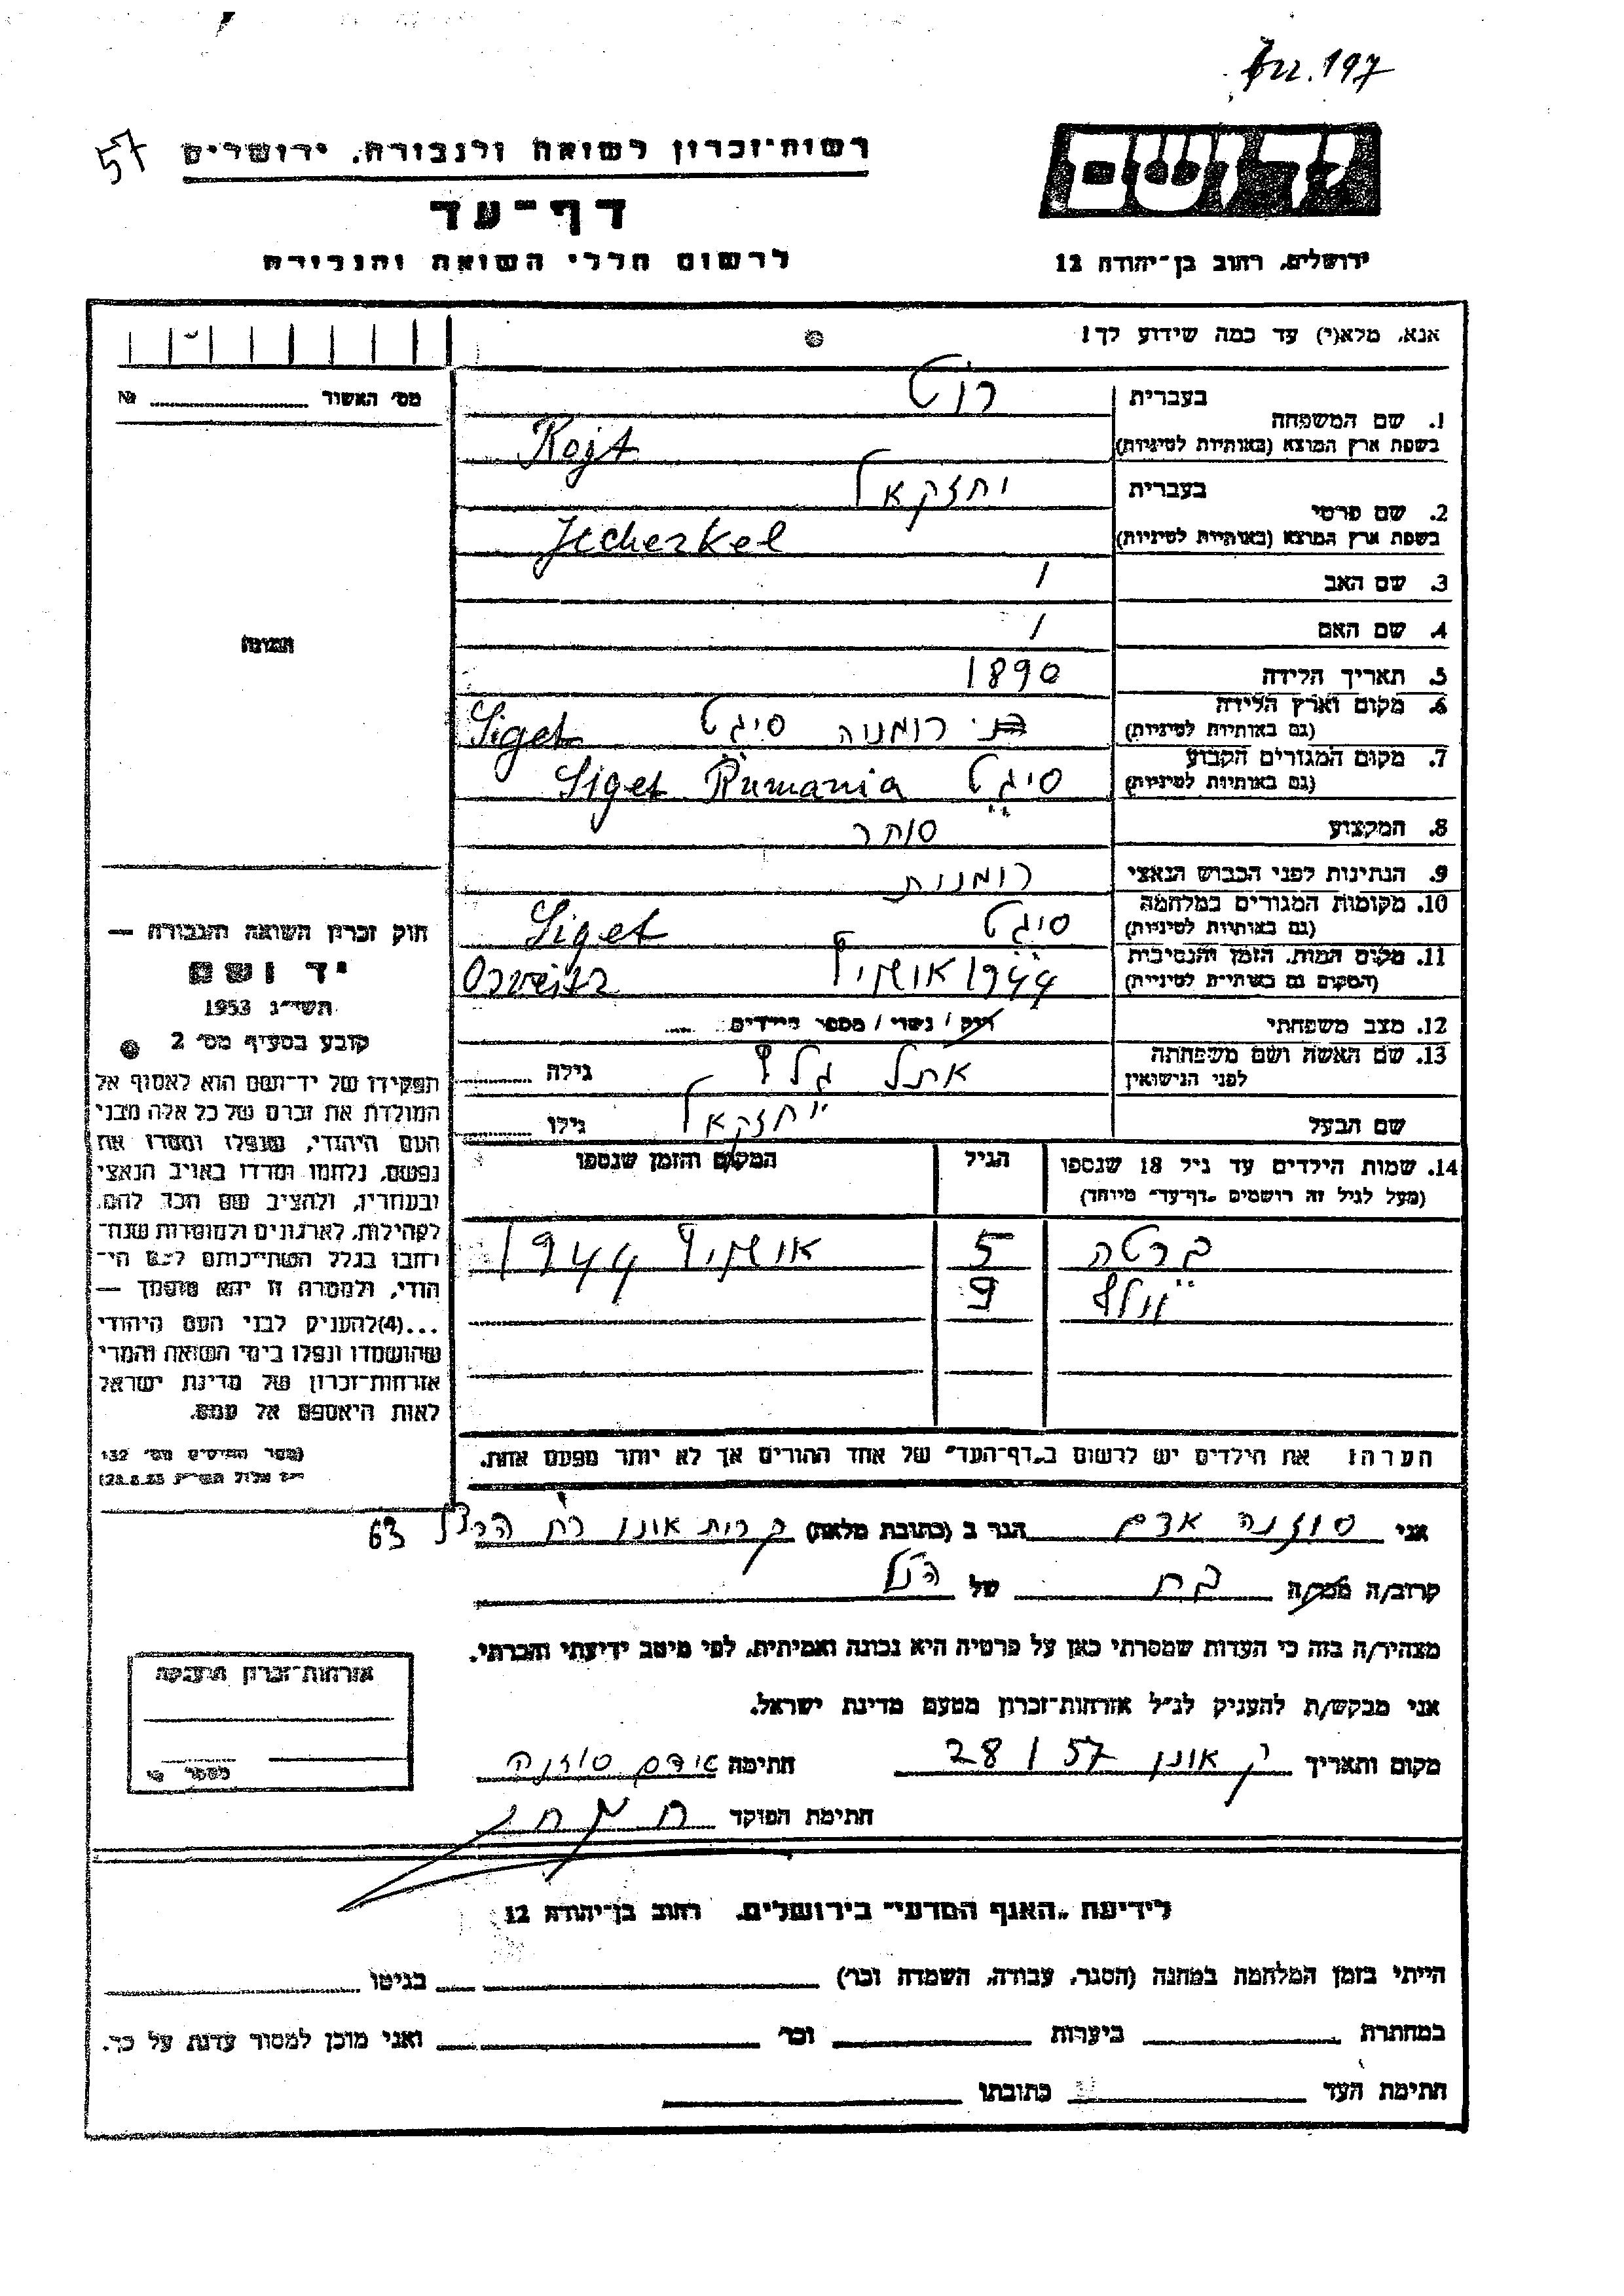 197
57
רשות-זכרון לשואה ולגבורה, ירושלים
יד ושם
דף-עד
לרשום חללי השואה והגבורה
ירושלים, רחוב בן-יהודה 12
אנא, מלא(י) עד כמה שידוע לך!
מס' האשור № 
1. שם המשפחה
בעברית רוט
בשפת ארץ המוצא (באותיות לטיניות) Rojt
2. שם פרטי
בעברית יחזקאל
בשפת ארץ המוצא (באותיות לטיניות) Jecheskel
3. שם האב /
4. שם האם /
5. תאריך הלידה 1890
6. מקום וארץ הלידה (גם באותיות לטיניות) רומניה סיגט Siget
7. מקום המגורים הקבוע (גם באותיות לטיניות) סיגט Siget Rumania
8. המקצוע סוחר
9. הנתינות לפני הכבוש הנאצי רומנית
10. מקומות המגורים במלחמה (גם באותיות לטיניות) סיגט Siget
11. מקום המות, הזמן והנסיבות (המקום גם באותיות לטיניות) 1944 אושויץ
12. מצב משפחתי רווק / נשוי / מספר הילדים
13. שם האשה ושם משפחתה לפני הנישואין אתל גלץ גילה
שם הבעל יחזקאל גילו
14. שמות הילדים עד גיל 18 שנספו (מעל לגיל זה רושמים „דף-עד" מיוחד)
הגיל
המקום והזמן שנספו
ברטה 5 אושויץ 1944
וולף 9
הערה: את הילדים יש לרשום ב„דף-העד" של אחד ההורים אך לא יותר מפעם אחת.
התמונה
חוק זכרון השואה והגבורה —
יד ושם
תשי"ג 1953
קובע בסעיף מס' 2
תפקידו של יד-ושם הוא לאסוף אל
המולדת את זכרם של כל אלה מבני
העם היהודי, שנפלו ומסרו את
נפשם, נלחמו ומרדו באויב הנאצי
ובעוזריו, ולהציב שם וזכר להם,
לקהילות, לארגונים ולמוסדות שנח-
רחבו בגלל השתייכותם לעם הי-
הודי, ולמטרה זו יהא מוסמך —
...(4) להעניק לבני העם היהודי
שהושמדו ונפלו בימי השואה והמרי
אזרחות-זכרון של מדינת ישראל
לאות היאספם אל עמם.
(ספר החוקים מס' 132
י"ז אלול תשי"ג 28.8.53)
אני סוזנה אדם הגר ב (כתובת מלאה) קרית אונו רח הרצל 63
קרוב/ה מכר/ה בת של הנ"ל
מצהיר/ה בזה כי העדות שמסרתי כאן על פרטיה היא נכונה ואמיתית, לפי מיטב ידיעתי והכרתי.
אני מבקש/ת להעניק לנ"ל אזרחות-זכרון מטעם מדינת ישראל.
מקום ותאריך ק אונו 28/57 חתימה אדם סוזנה
חתימת הפוקד
אזרחות-זכרון הוענקה
מספר
לידיעת „האגף המדעי" בירושלים, רחוב בן-יהודה 12
הייתי בזמן המלחמה במחנה (הסגר, עבודה, השמדה וכו') בגיטו
במחתרת ביערות וכו' ואני מוכן למסור עדות על כך.
חתימת העד כתובתו